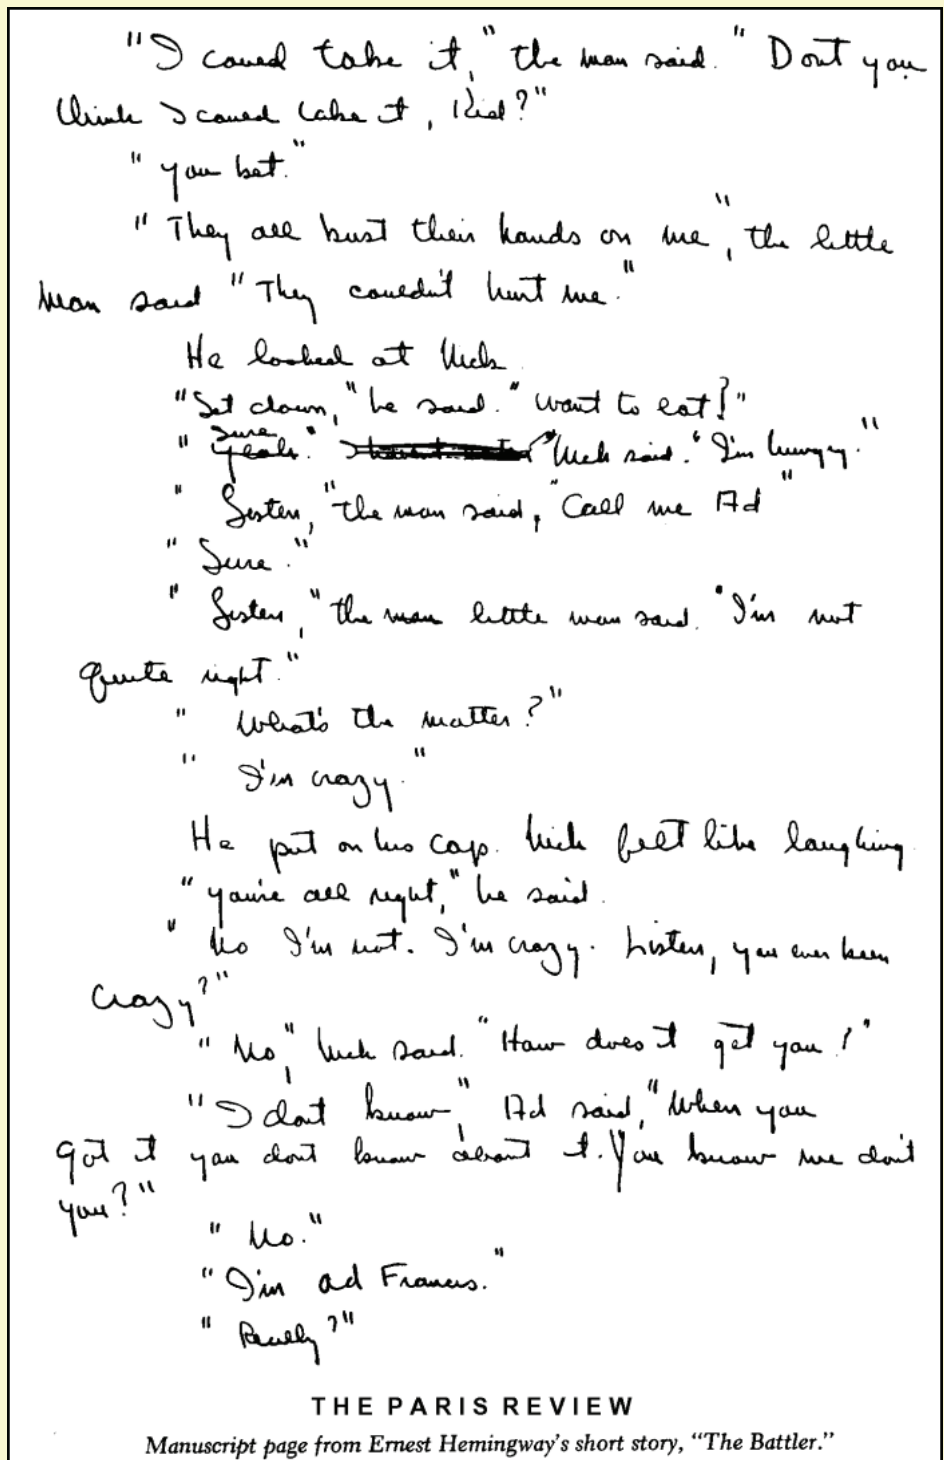 "I could take it," the man said. "Dont you
think I could take it, Kid?"
"You bet."
"They all bust their hands on me", the little
man said "They couldn't hurt me."
He looked at Nick
"Set down," he said. "Want to eat?"
"Yeah. Sure." "Nick said. "I'm hungry."
"Listen," the man said, "Call me Ad"
"Sure."
"Listen," the man little man said. "I'm not
quite right."
"What's the matter?"
"I'm crazy."
He put on his cap. Nick felt like laughing
"You're all right," he said.
"No I'm not. I'm crazy. Listen, you ever been
crazy?"
"No," Nick said. "How does it get you?"
"I dont know," Ad said, "When you
got it you dont know about it. You know me don't
you?"
"No."
"I'm ad Francis."
"Really?"
THE PARIS REVIEW
Manuscript page from Ernest Hemingway's short story, "The Battler."